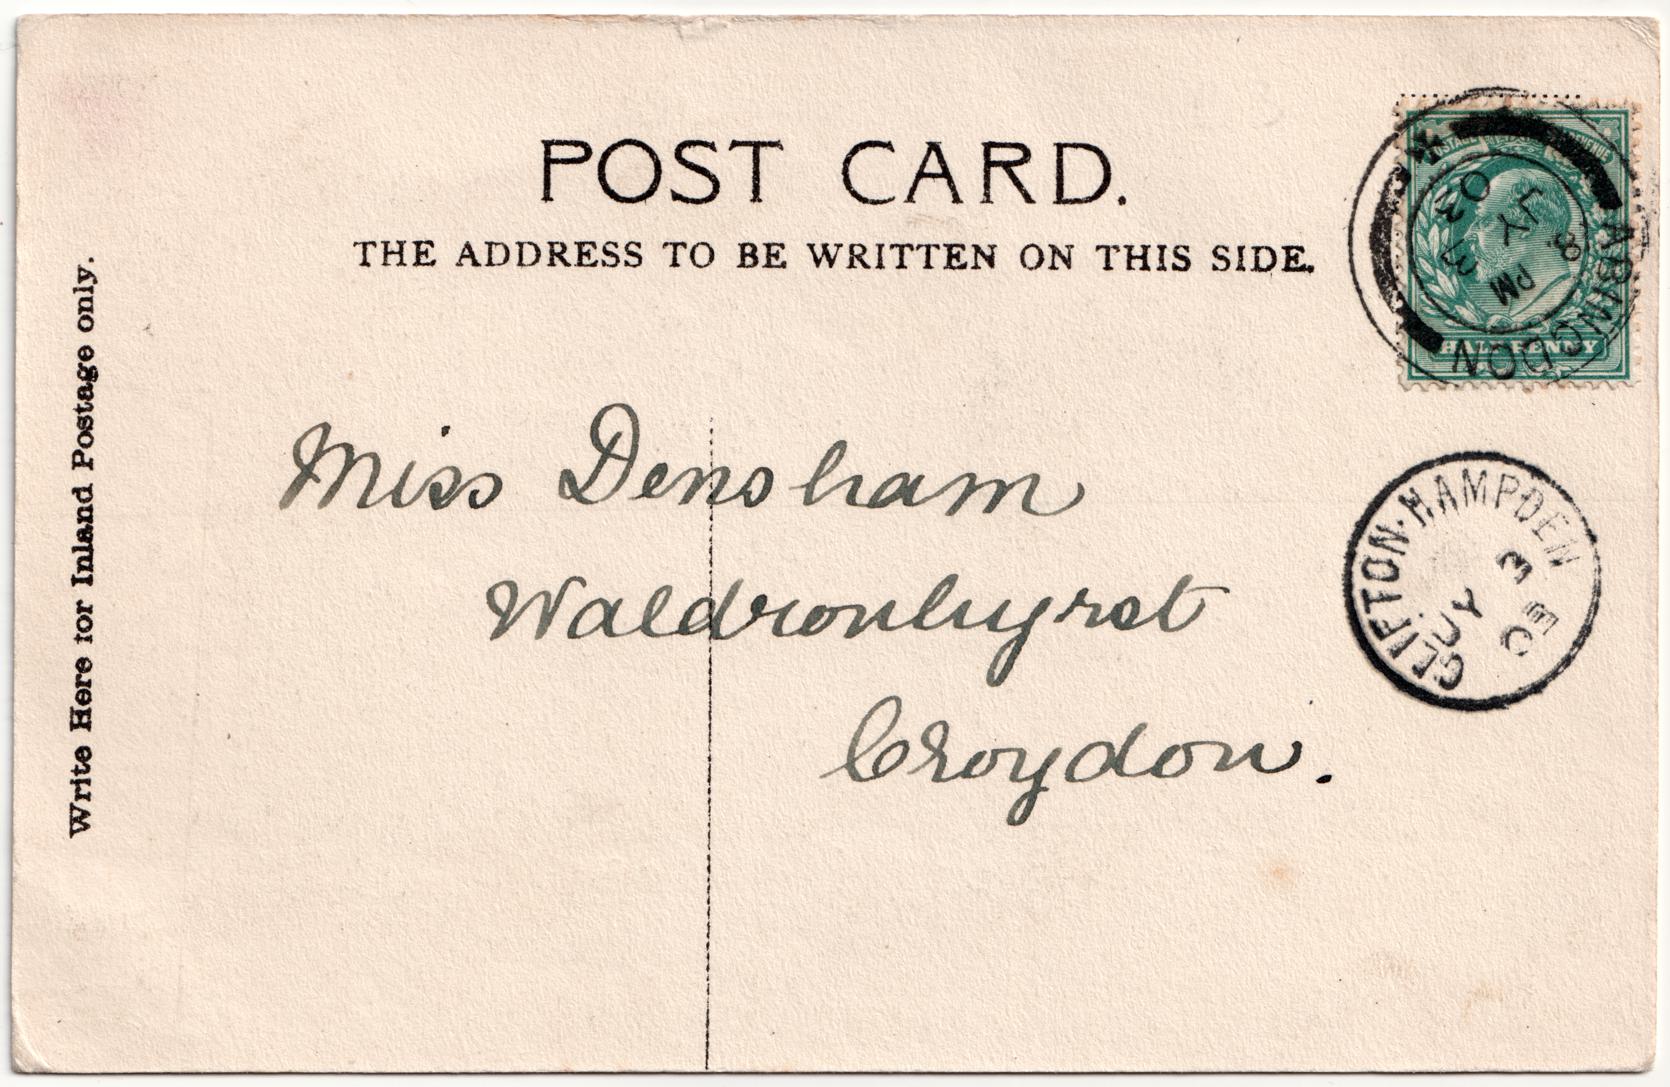 POST CARD.
THE ADDRESS TO BE WRITTEN ON THIS SIDE.
Write Here for Inland Postage only.
POSTAGE REVENUE
HALFPENNY
ABINGDON
8 PM
JY 3
03
Miss Densham
Waldronhyrst
Croydon.
CLIFTON·HAMPDEN
JY 3
03